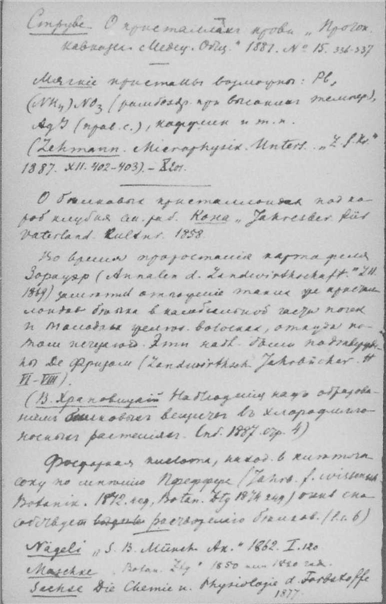 Струве. О кристаллахъ крови „Проток.
кавказк. Медец. Общ.“ 1881. № 15. 334-337
Мягкiе кристалы возможны: Pb,
(NH4)NO3 (ромбоэдр. при высоких темпер.),
AgJ (прав. с.), каффеин и т. п.
(Lehmann. Microphysik. Unters. „Z. f. Kr.“
1887. XII. 402-403).
О белковых кристаллоидах под ко-
рой клубня см. раб. Кона „Jahresber.
Vaterländ. Cultur. 1858.
Во время проростания картофеля
Зорауэр (Annalen d. Landwirthschaft.
1869) заметил отложение таких же кристал-
лоидов белка в части почек
и молодых волосках, откуда по-
том Эти набл. были подтвержде-
ны Де Фризом (Landwirthsch. Jahrbücher.
VI-VIII).
(В. Хрząповицкiй Наблюдения надъ образова-
нiемъ белковых веществъ въ хлорофилло-
носных растенiях. Спб. 1887. стр. 4)
Фосфорная кислота, наход. в клеточн.
соку по мнению Пфеффера (Jahrb. f. wissensch.
Botanik. 1872. Botan. Ztg 1874)
собствует растворению белков. (l. c. 6)
Nägeli „S. B. Münch. Ak.“ 1862. I. 120
Maschke „Botan. Ztg“
Sachse Die Chemie u. Physiologie d. Farbstoffe
1877.